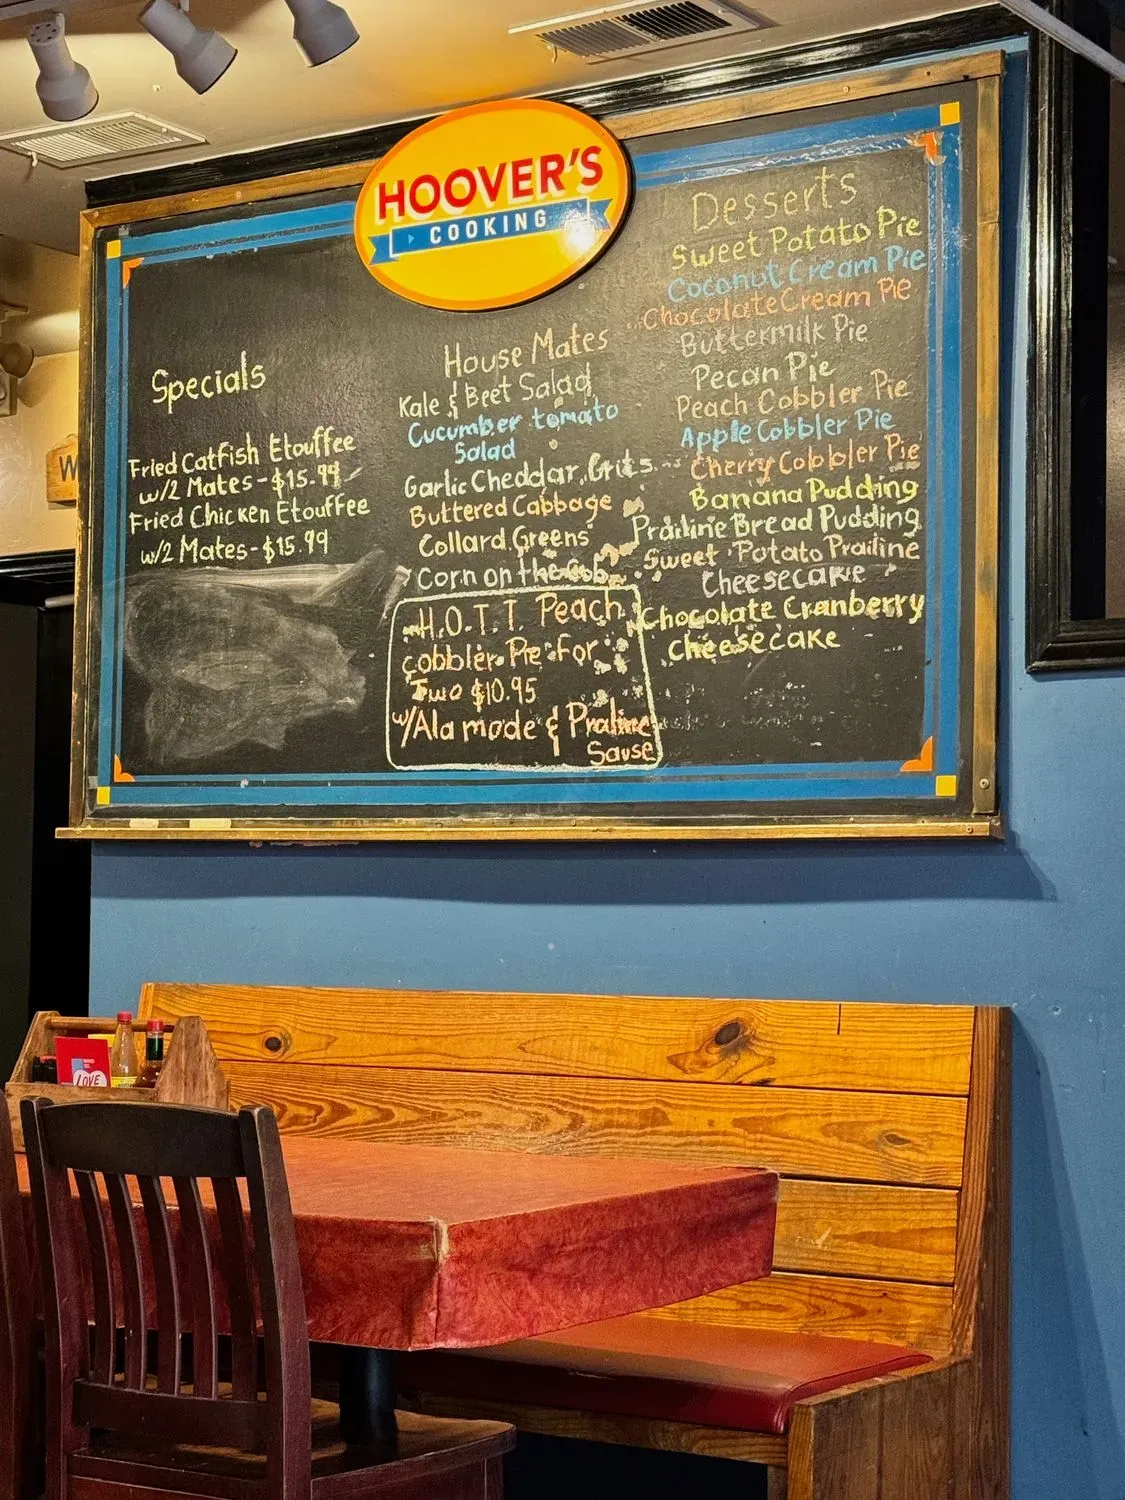 HOOVER'S
COOKING
Specials
Fried Catfish Etouffee
w/2 Mates - $15.99
Fried Chicken Etouffee
w/2 Mates - $15.99
House Mates
Kale & Beet Salad
Cucumber tomato
Salad
Garlic Cheddar Grits
Buttered Cabbage
Collard Greens
Corn on the Cob
H.O.T.T. Peach
Cobbler Pie For
Two $10.95
w/Ala mode & Praline
Sause
Desserts
Sweet Potato Pie
Coconut Cream Pie
Chocolate Cream Pie
Buttermilk Pie
Pecan Pie
Peach Cobbler Pie
Apple Cobbler Pie
Cherry Cobbler Pie
Banana Pudding
Prailine Bread Pudding
Sweet Potato Prailine
Cheesecake
Chocolate Cranberry
Cheesecake
W
LOVE